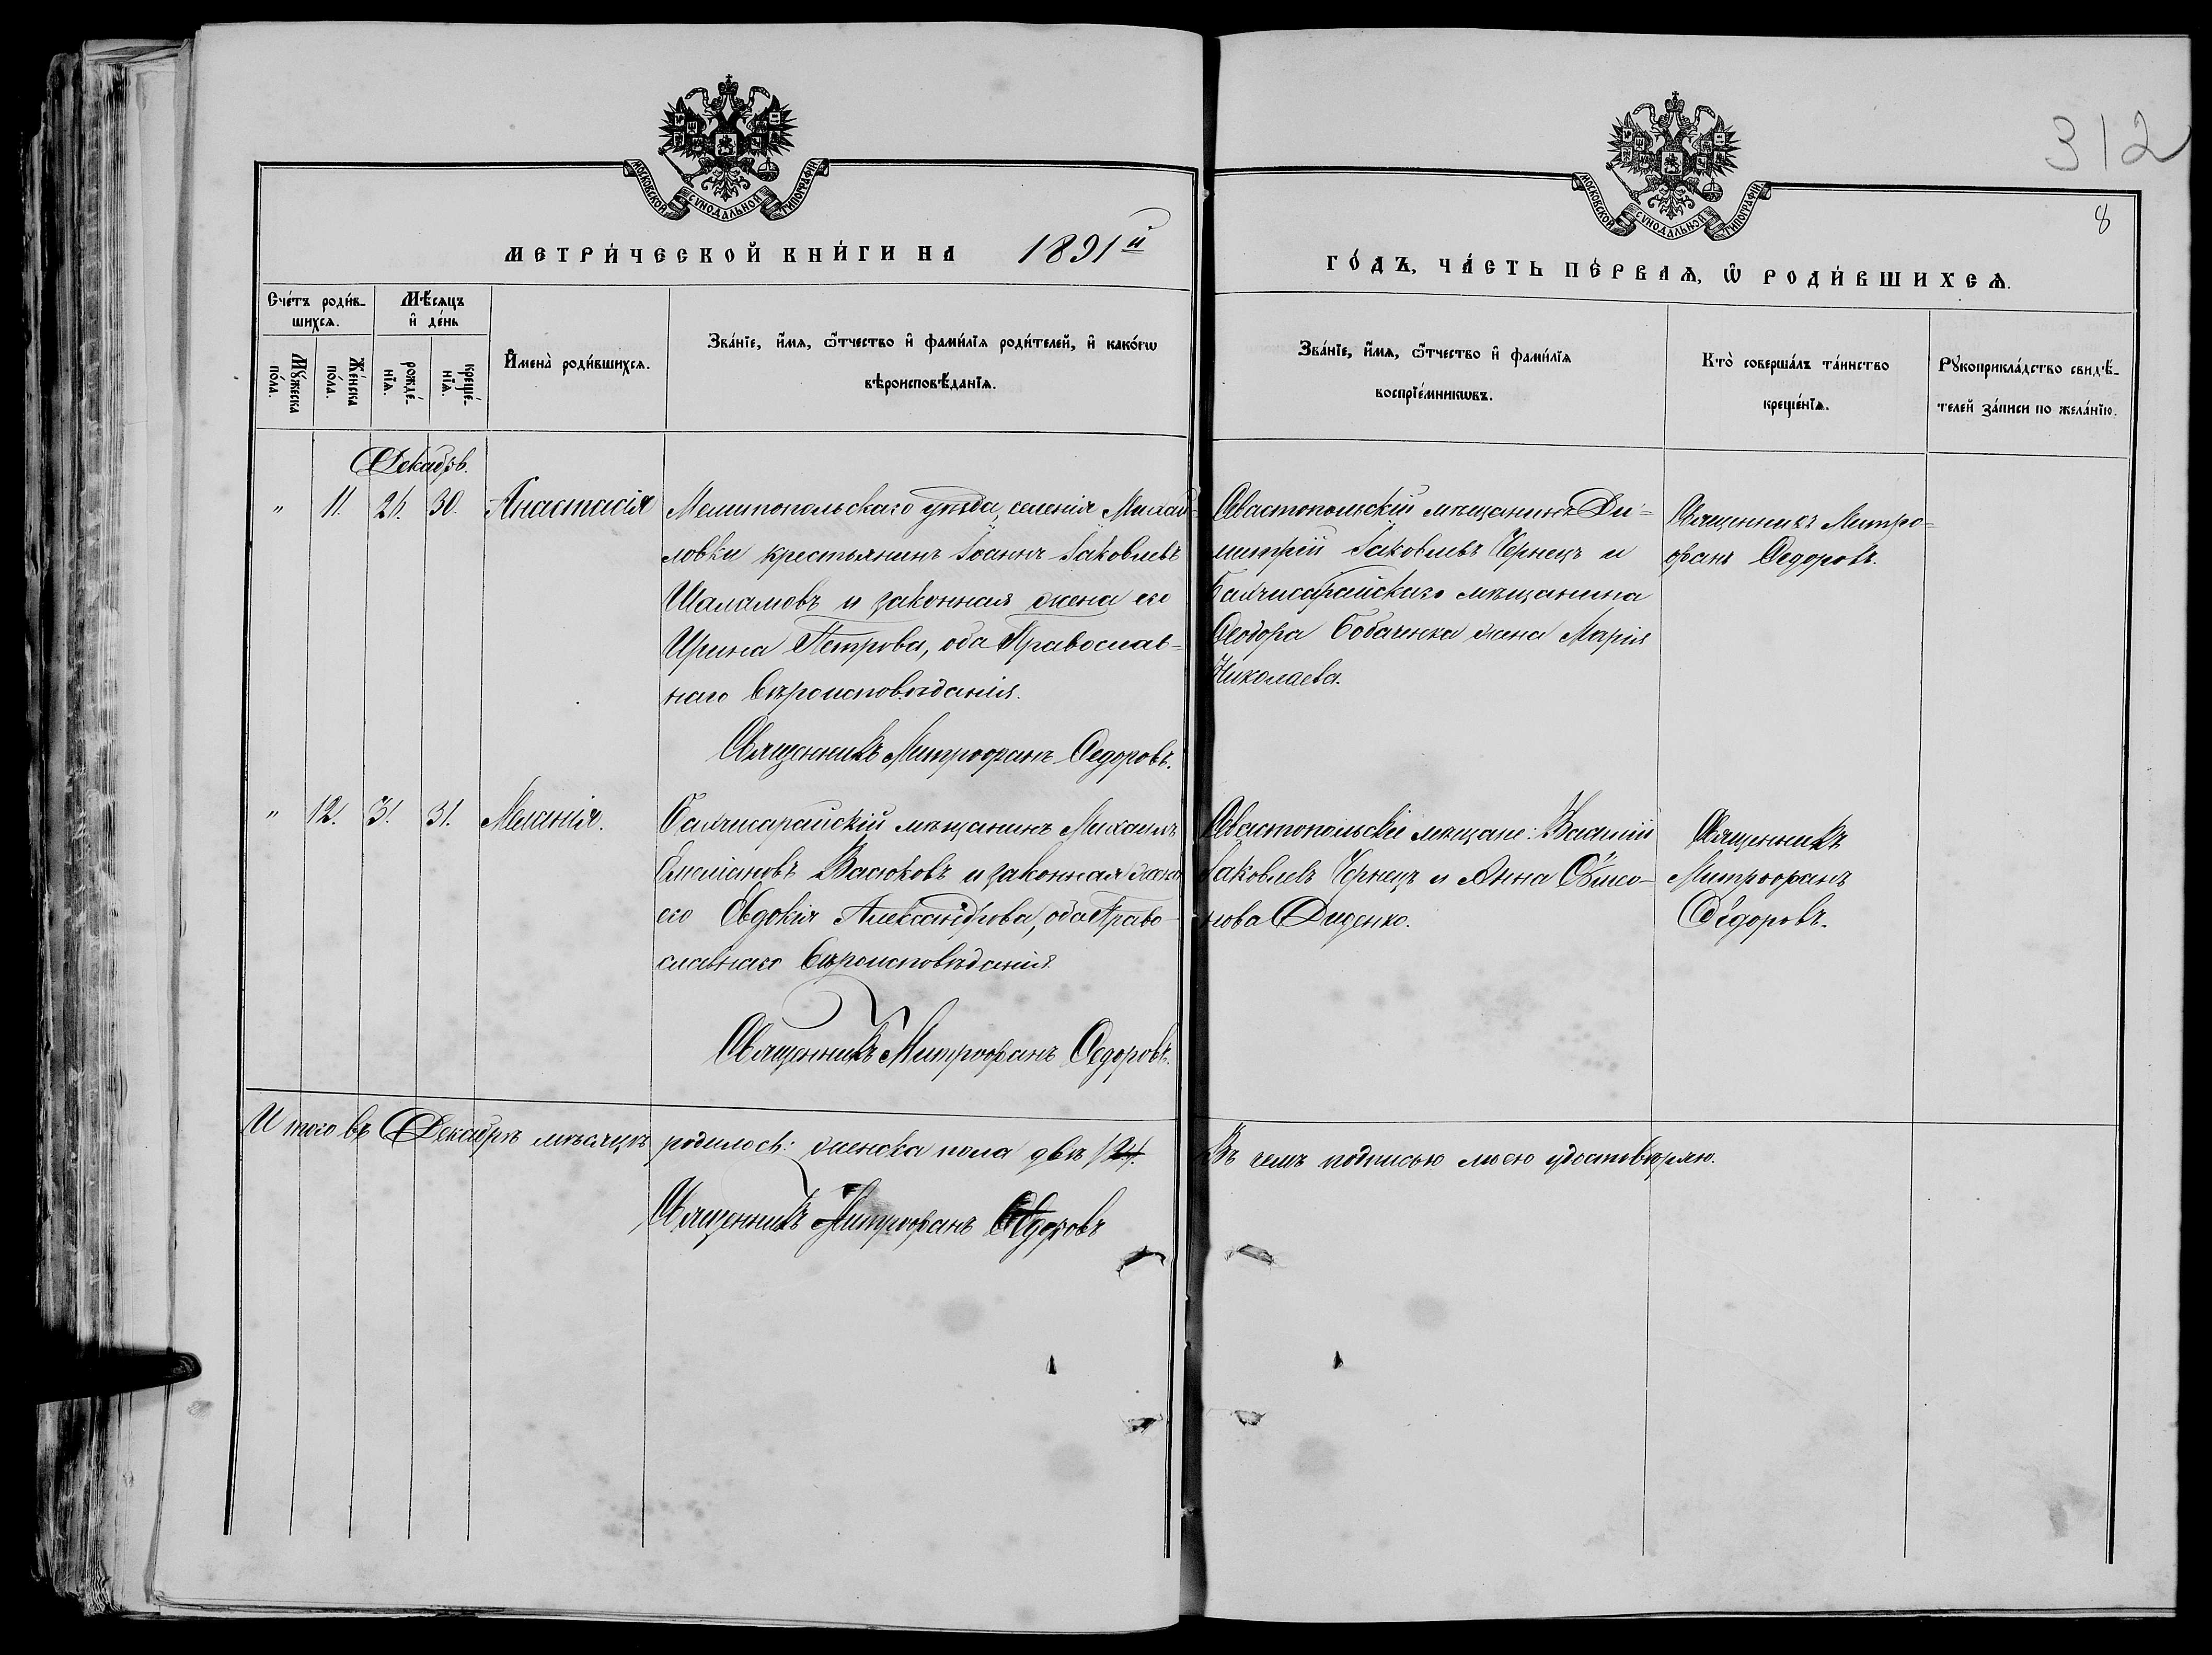 312
8
МОСКОВСКОЙ СѴНОДАЛЬНОЙ ТИПОГРАФІИ
МОСКОВСКОЙ СѴНОДАЛЬНОЙ ТИПОГРАФІИ
МЕТРИ́ЧЕСКОЙ КНИ́ГИ НА 1891й
ГО́ДЪ, ЧА́СТЬ ПЕ́РВАѦ, Ѽ РОДИ́ВШИХСѦ.
Сче́тъ роди́в-
шихсѧ.
Мѣ́сѧцъ
и҆ де́нь
Мꙋ́жеска
по́ла.
Же́нска
по́ла.
рожде́-
нїѧ.
креще́-
нїѧ.
И҆мена̀ роди́вшихсѧ.
Зва́нїе, и҆́мѧ, ѻ҆́тчество и҆ фами́лїѧ роди́телей, и҆ како́гѡ
вѣроисповѣ́данїѧ.
Зва́нїе, и҆́мѧ, ѻ҆́тчество и҆ фами́лїѧ
воспрїе́мникѡвъ.
Кто̀ соверша́лъ та́инство
креще́нїѧ.
Рꙋкоприкла́дство свидѣ́-
телей за́писи по жела́нїю.
Декабрь.
" 11. 21. 30. Анастасія
Мелитопольскаго уѣзда, селенія Михай-
ловки крестьянинъ Іоаннъ Іаковлевъ
Шаламовъ и законная жена его
Ирина Петрова, оба Православ-
наго вѣроисповѣданія.
Священникъ Митрофанъ Федоровъ.
Севастопольскій мѣщанинъ Ди-
митрій Іаковлевъ Чернецъ и
Бахчисарайскаго мѣщанина
Феодора Бобаченка жена Марія
Николаева.
Священникъ Митро-
фанъ Федоровъ.
" 12. 31. 31. Меланія.
Бахчисарайскій мѣщанинъ Михаилъ
Емеліановъ Васюковъ и законная жена
его Евдокія Александрова, оба Право-
славнаго вѣроисповѣданія
Священникъ Митрофанъ Федоровъ.
Севастопольскіе мѣщане: Василій
Іаковлевъ Чернецъ и Анна Симео-
нова Диденко.
Священникъ
Митрофанъ
Федоровъ.
Итого въ Декабрѣ мѣсяцѣ родилось: женска пола двѣ
Въ чемъ подписью моею удостовѣряю.
Священникъ Митрофанъ Федоровъ